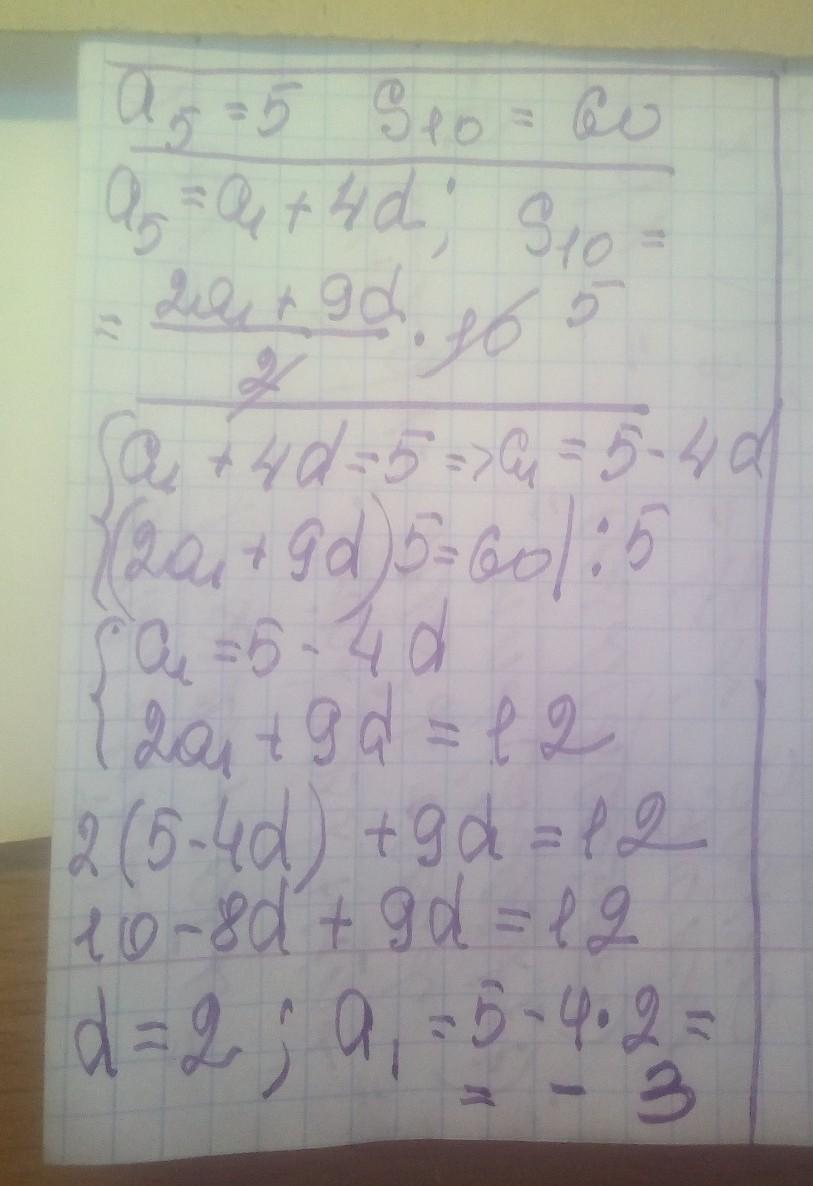 a₅ = 5 S₁₀ = 60
a₅ = a₁ + 4d; S₁₀ =
= (2a₁ + 9d)/2 · 10 5
{ a₁ + 4d = 5 => a₁ = 5 - 4d
{ (2a₁ + 9d) 5 = 60 | : 5
{ a₁ = 5 - 4d
{ 2a₁ + 9d = 12
2(5 - 4d) + 9d = 12
10 - 8d + 9d = 12
d = 2; a₁ = 5 - 4 · 2 =
= - 3